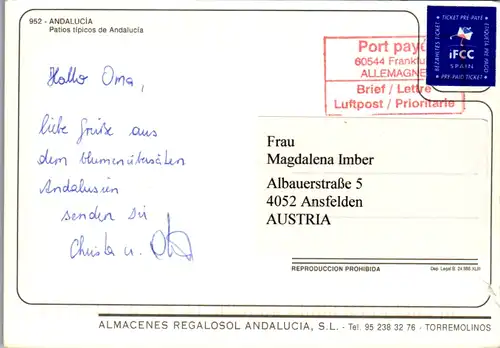 952 - ANDALUCÍA
Patios típicos de Andalucía
Hallo Oma,
liebe Grüße aus
dem blumenübersäten
Andalusien
senden Dir
Christa u.
TICKET PRE-PAYÉ
BEZAHLTES TICKET
ETIQUETA PRE-PAGO
iFCC
SPAIN
PRE-PAID TICKET
Port payé
60544 Frankfurt
ALLEMAGNE
Brief / Lettre
Luftpost / Prioritaire
Frau
Magdalena Imber
Albauerstraße 5
4052 Ansfelden
AUSTRIA
REPRODUCCION PROHIBIDA
Dep. Legal B.
ALMACENES REGALOSOL ANDALUCIA, S.L. - Tel. 95 238 32 76 - TORREMOLINOS